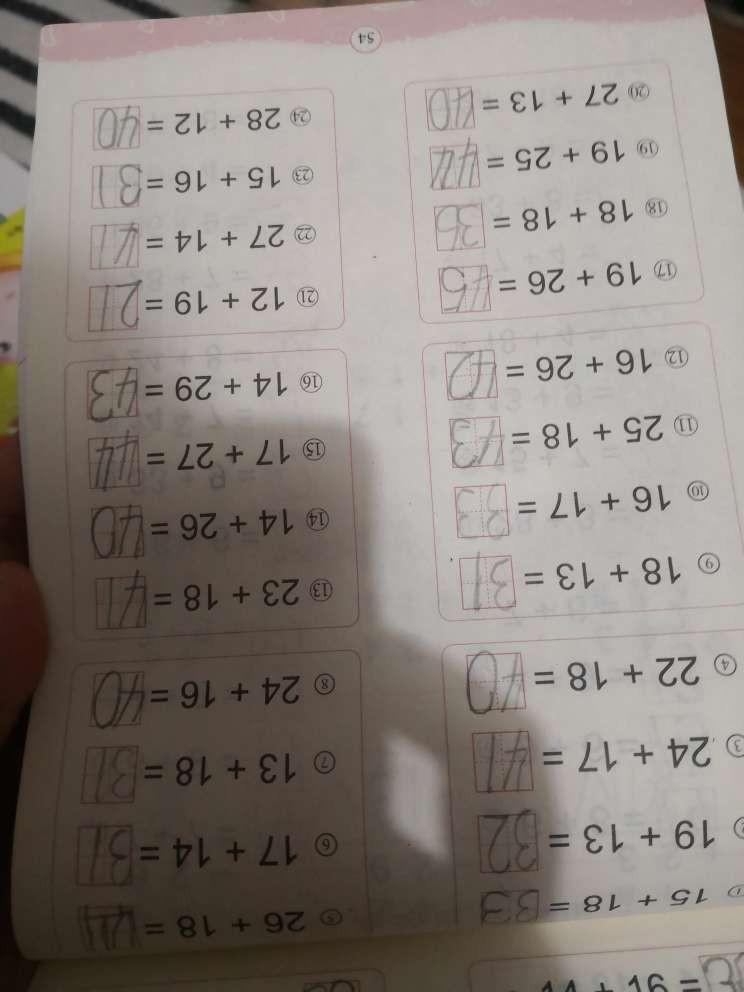 ① 15 + 18 = 33
② 19 + 13 = 32
③ 24 + 17 = 41
④ 22 + 18 = 40
⑤ 26 + 18 = 44
⑥ 17 + 14 = 31
⑦ 13 + 18 = 31
⑧ 24 + 16 = 40
⑨ 18 + 13 = 31
⑩ 16 + 17 = 33
⑪ 25 + 18 = 43
⑫ 16 + 26 = 42
⑬ 23 + 18 = 41
⑭ 14 + 26 = 40
⑮ 17 + 27 = 44
⑯ 14 + 29 = 43
⑰ 19 + 26 = 45
⑱ 18 + 18 = 36
⑲ 19 + 25 = 44
⑳ 27 + 13 = 40
㉑ 12 + 19 = 21
㉒ 27 + 14 = 41
㉓ 15 + 16 = 31
㉔ 28 + 12 = 40
54